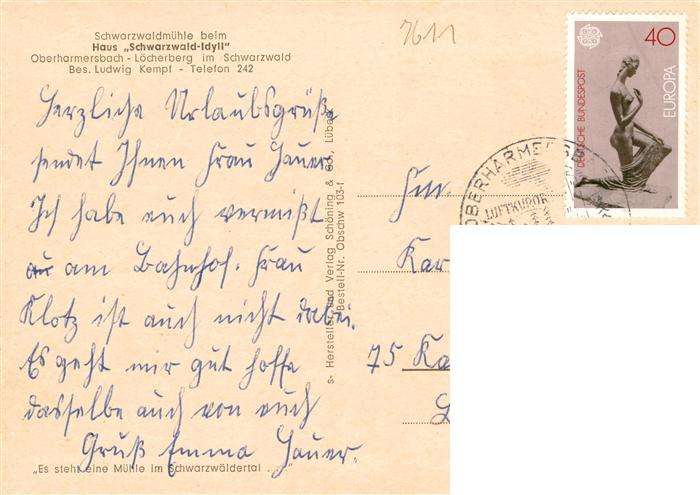 Schwarzwaldmühle beim
Haus „Schwarzwald-Idyll"
Oberharmersbach - Löcherberg im Schwarzwald
Bes. Ludwig Kempf - Telefon 242
Herzliche Urlaubsgrüße
sendet Ihnen Frau Hauer
Ich habe euch vermißt
am Bahnhof. Frau
Klotz ist auch nicht dabei.
Es geht mir gut hoffe
dasselbe auch von euch
Gruß Emma Hauer.
„Es steht eine Mühle im Schwarzwäldertal . . ."
s- Hersteller und Verlag Schöning & Co., Lübeck
Bestell-Nr. Obschw 103-1
7611
40
DEUTSCHE BUNDESPOST
EUROPA
OBERHARMERS
LUFTKURORT
Kar
75 Ka